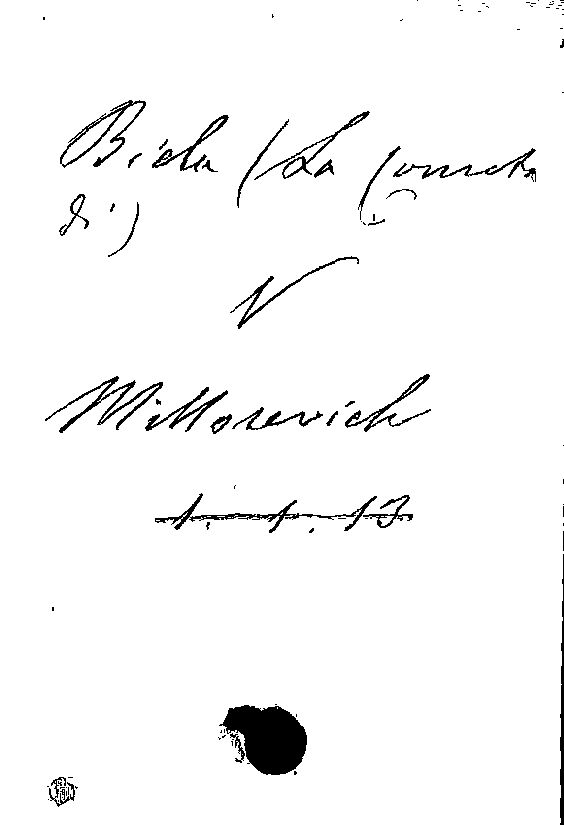 Biela (La Cometa
di)
V
Millosevich
1. 1. 13